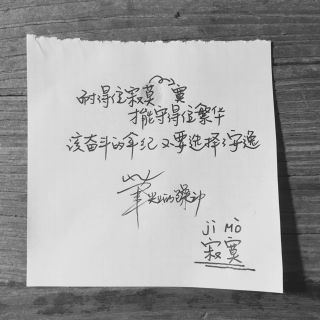 耐得住寂莫 寞
才能守得住繁华
该奋斗的年纪不要选择安逸
的躁动
jì Mò
寂寞